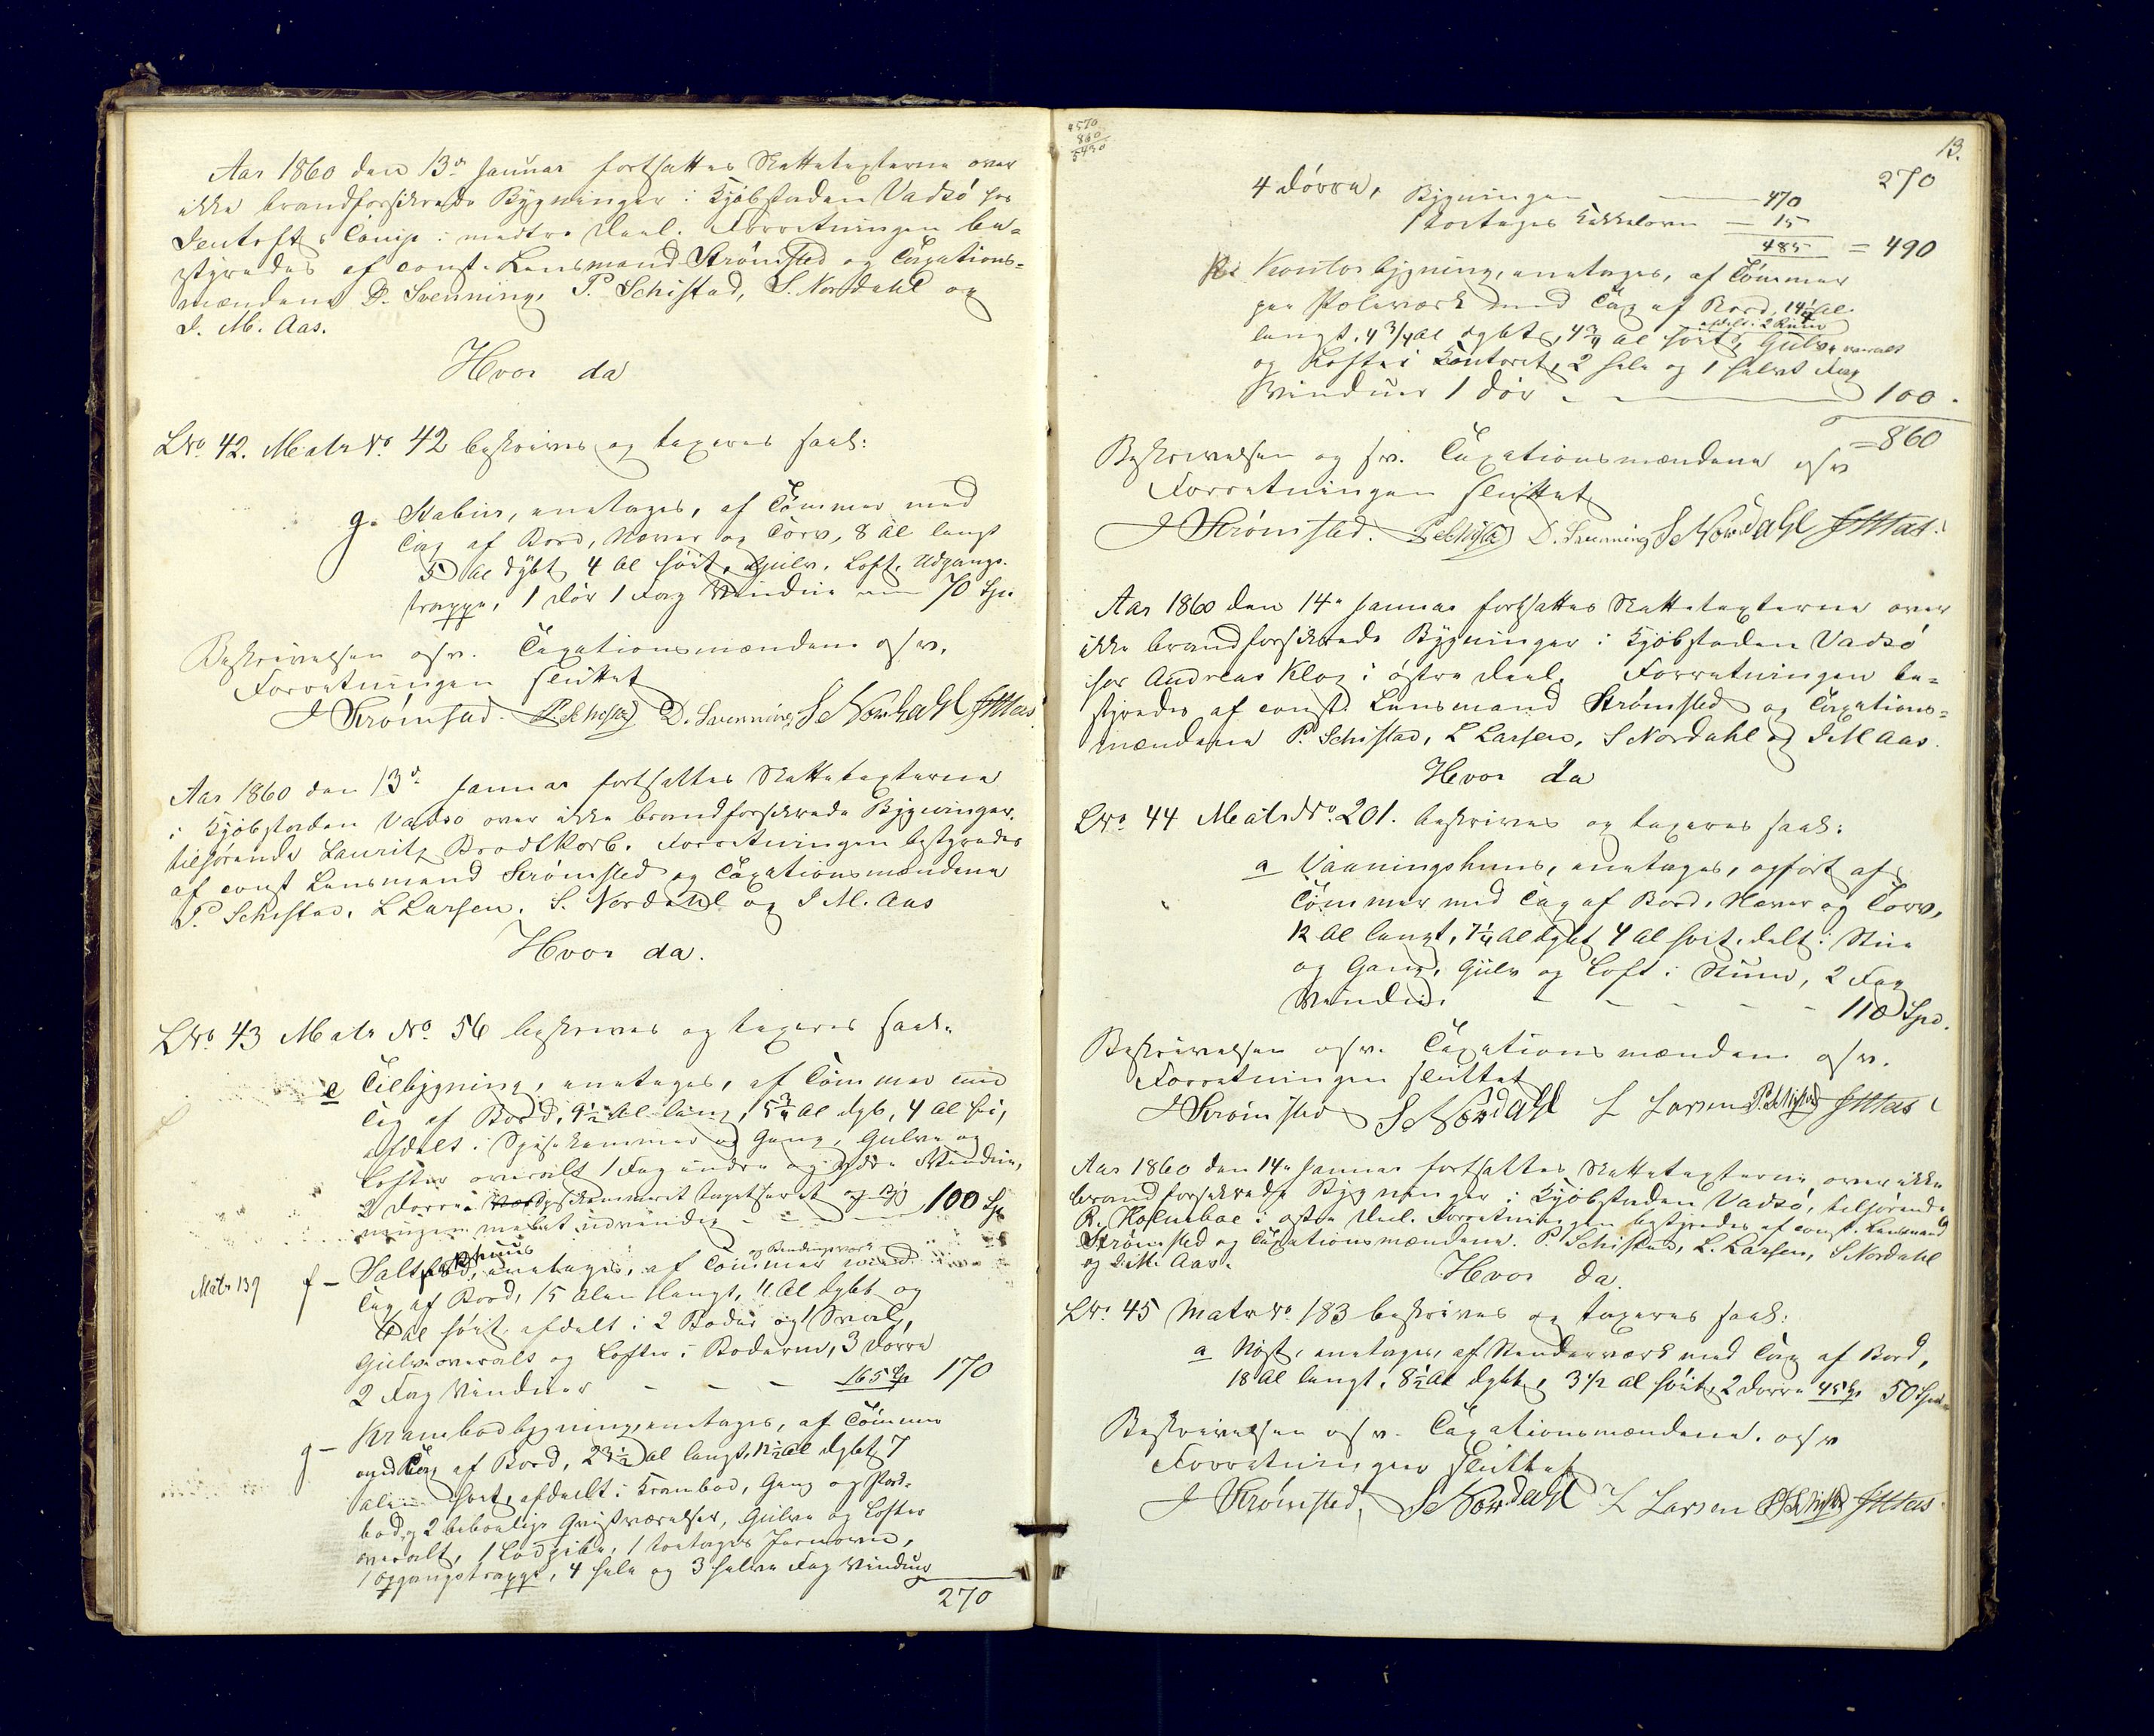 Aar 1860 den 13de Januar fortsattes Skattetaxterne over
ikke brandforsikrede Bygninger i Kjøbstaden Vadsø hos
Comp: i medtre Deel. Forretningen be-
styredes af const. Lensmand Strømsted og Taxations-
mændene D. Svenning, P. Schistad, S. Nordahl og
J. M. Aas.
Hvor da
LNo. 42. Matr No. 42 beskrives og taxeres saal:
g. Stabur, enetages, af Tømmer med
Tag af Bord, Næver og Torv, 8 Al langt
5 Al dybt 4 Al høit, Gulv, Loft, Udgangs-
trappe, 1 Dør 1 Fag Vindue 70 Spd
Beskrivelsen osv. Taxationsmændene osv.
Forretningen sluttet
J Strømsted. P. Schistad D. Svenning S Nordahl JMAas
Aar 1860 den 13de Januar fortsattes Skattetaxterne
i Kjøbstaden Vadsø over ikke brandforsikrede Bygninger,
tilhørende Lauritz Brodtkorb. Forretningen bestyredes
af const Lensmand Strømsted og Taxationsmændene
P. Schistad, L Larsen, S. Nordahl og J M. Aas
Hvor da.
LNo. 43 Matr No. 56 beskrives og taxeres saal.
e Tilbygning, enetages, af Tømmer med
Tag af Bord, 9½ Al lang, 5¾ Al dyb, 4 Al høi,
afdelt i Spisekammer og Gang, Gulve og
Lofter overalt 1 Fag indre og ydre Vindue,
2 Dørre. tapetseret og Byg
ningen malet udvendig - - 100 Spd
Matr 139 f - Salthuus, enetages, af Tømmer og Bindingsværk med
Tag af Bord, 15 Alen langt, 11 Al dybt og
Al høit, afdelt i 2 Boder og 1 Sval,
Gulve overalt og Lofter i Boderne, 3 Dørre
2 Fag Vinduer - - - 165 Sp 170
g - Krambodbygning, enetages, af Tømmer
med Tag af Bord, 23½ Al langt, 12½ Al dybt 7
alen høit, afdeelt i Krambod, Gang og Pak-
bod, og 2 beboelige Qvistværelser, Gulve og Lofter
overalt, 1 1 toetages Jernovn,
1 Opgangstrappe, 4 hele og 3 halve Fag Vinduer
270
4570
860
5430
13.
4 Dørre, Bygningen 470 270
1 toetages Kakkelovn = 15
485 = 490
Kontorbygning, enetages, af Tømmer
paa Poleværk med Tag af Bord, 14¼ Al.
langt, 4 3/4 Al dybt, 4¾ Al høit, afdelt i 2 Rum Gulve overalt
og Loft i Kontoret, 2 hele og 1 halvt Fag
Vinduer 1 Dør - - 100.
= 860
Beskrivelsen og sv. Taxationsmændene osv
Forretningen sluttet
J Strømsted. P. Schistad D. Svenning S Nordahl JMAas.
Aar 1860 den 14de Januar fortsattes Skattetaxterne over
ikke brandforsikrede Bygninger i Kjøbstaden Vadsø
hos Andreas Klog i østre Deel. Forretningen be-
styredes af const. Lensmand Strømsted og Taxations-
mændene P. Schistad, L Larsen, S Nordahl og J M Aas.
Hvor da
LNo. 44 Matr No. 201. beskrives og taxeres saal:
a Vaaningshuus, enetages, opført af
Tømmer med Tag af Bord, Næver og Torv,
12 Al langt, 7¼ Al dybt 4 Al høit, delt i Stue
og Gang, Gulv og Loft i Stuen, 2 Fag
Vinduer. - - - - - 110 Spd.
Beskrivelsen osv. Taxationsmændene osv.
Forretningen sluttet
J Strømsted S Nordahl L Larsen P. Schistad JMAas
Aar 1860 den 14de Januar fortsattes Skattetaxterne over ikke
brandforsikrede Bygninger i Kjøbstaden Vadsø, tilhørende
R. Holmboe i østre Deel. Forretningen bestyredes af const. Lensmand
Strømsted og Taxationsmændene. P. Schistad, L. Larsen, S Nordahl
og J. M. Aas.
Hvor da.
LNo. 45 Matr No. 183 beskrives og taxeres saal:
a Nøst, enetages, af Stenderværk med Tag af Bord,
18 Al langt, 8½ Al dybt, 3 1/2 Al høit, 2 Dørre 45 Sp 50 Spd
Beskrivelsen osv. Taxationsmændene. osv
Forretningen sluttet
J Strømsted, S Nordahl L Larsen P Schistad JMAas